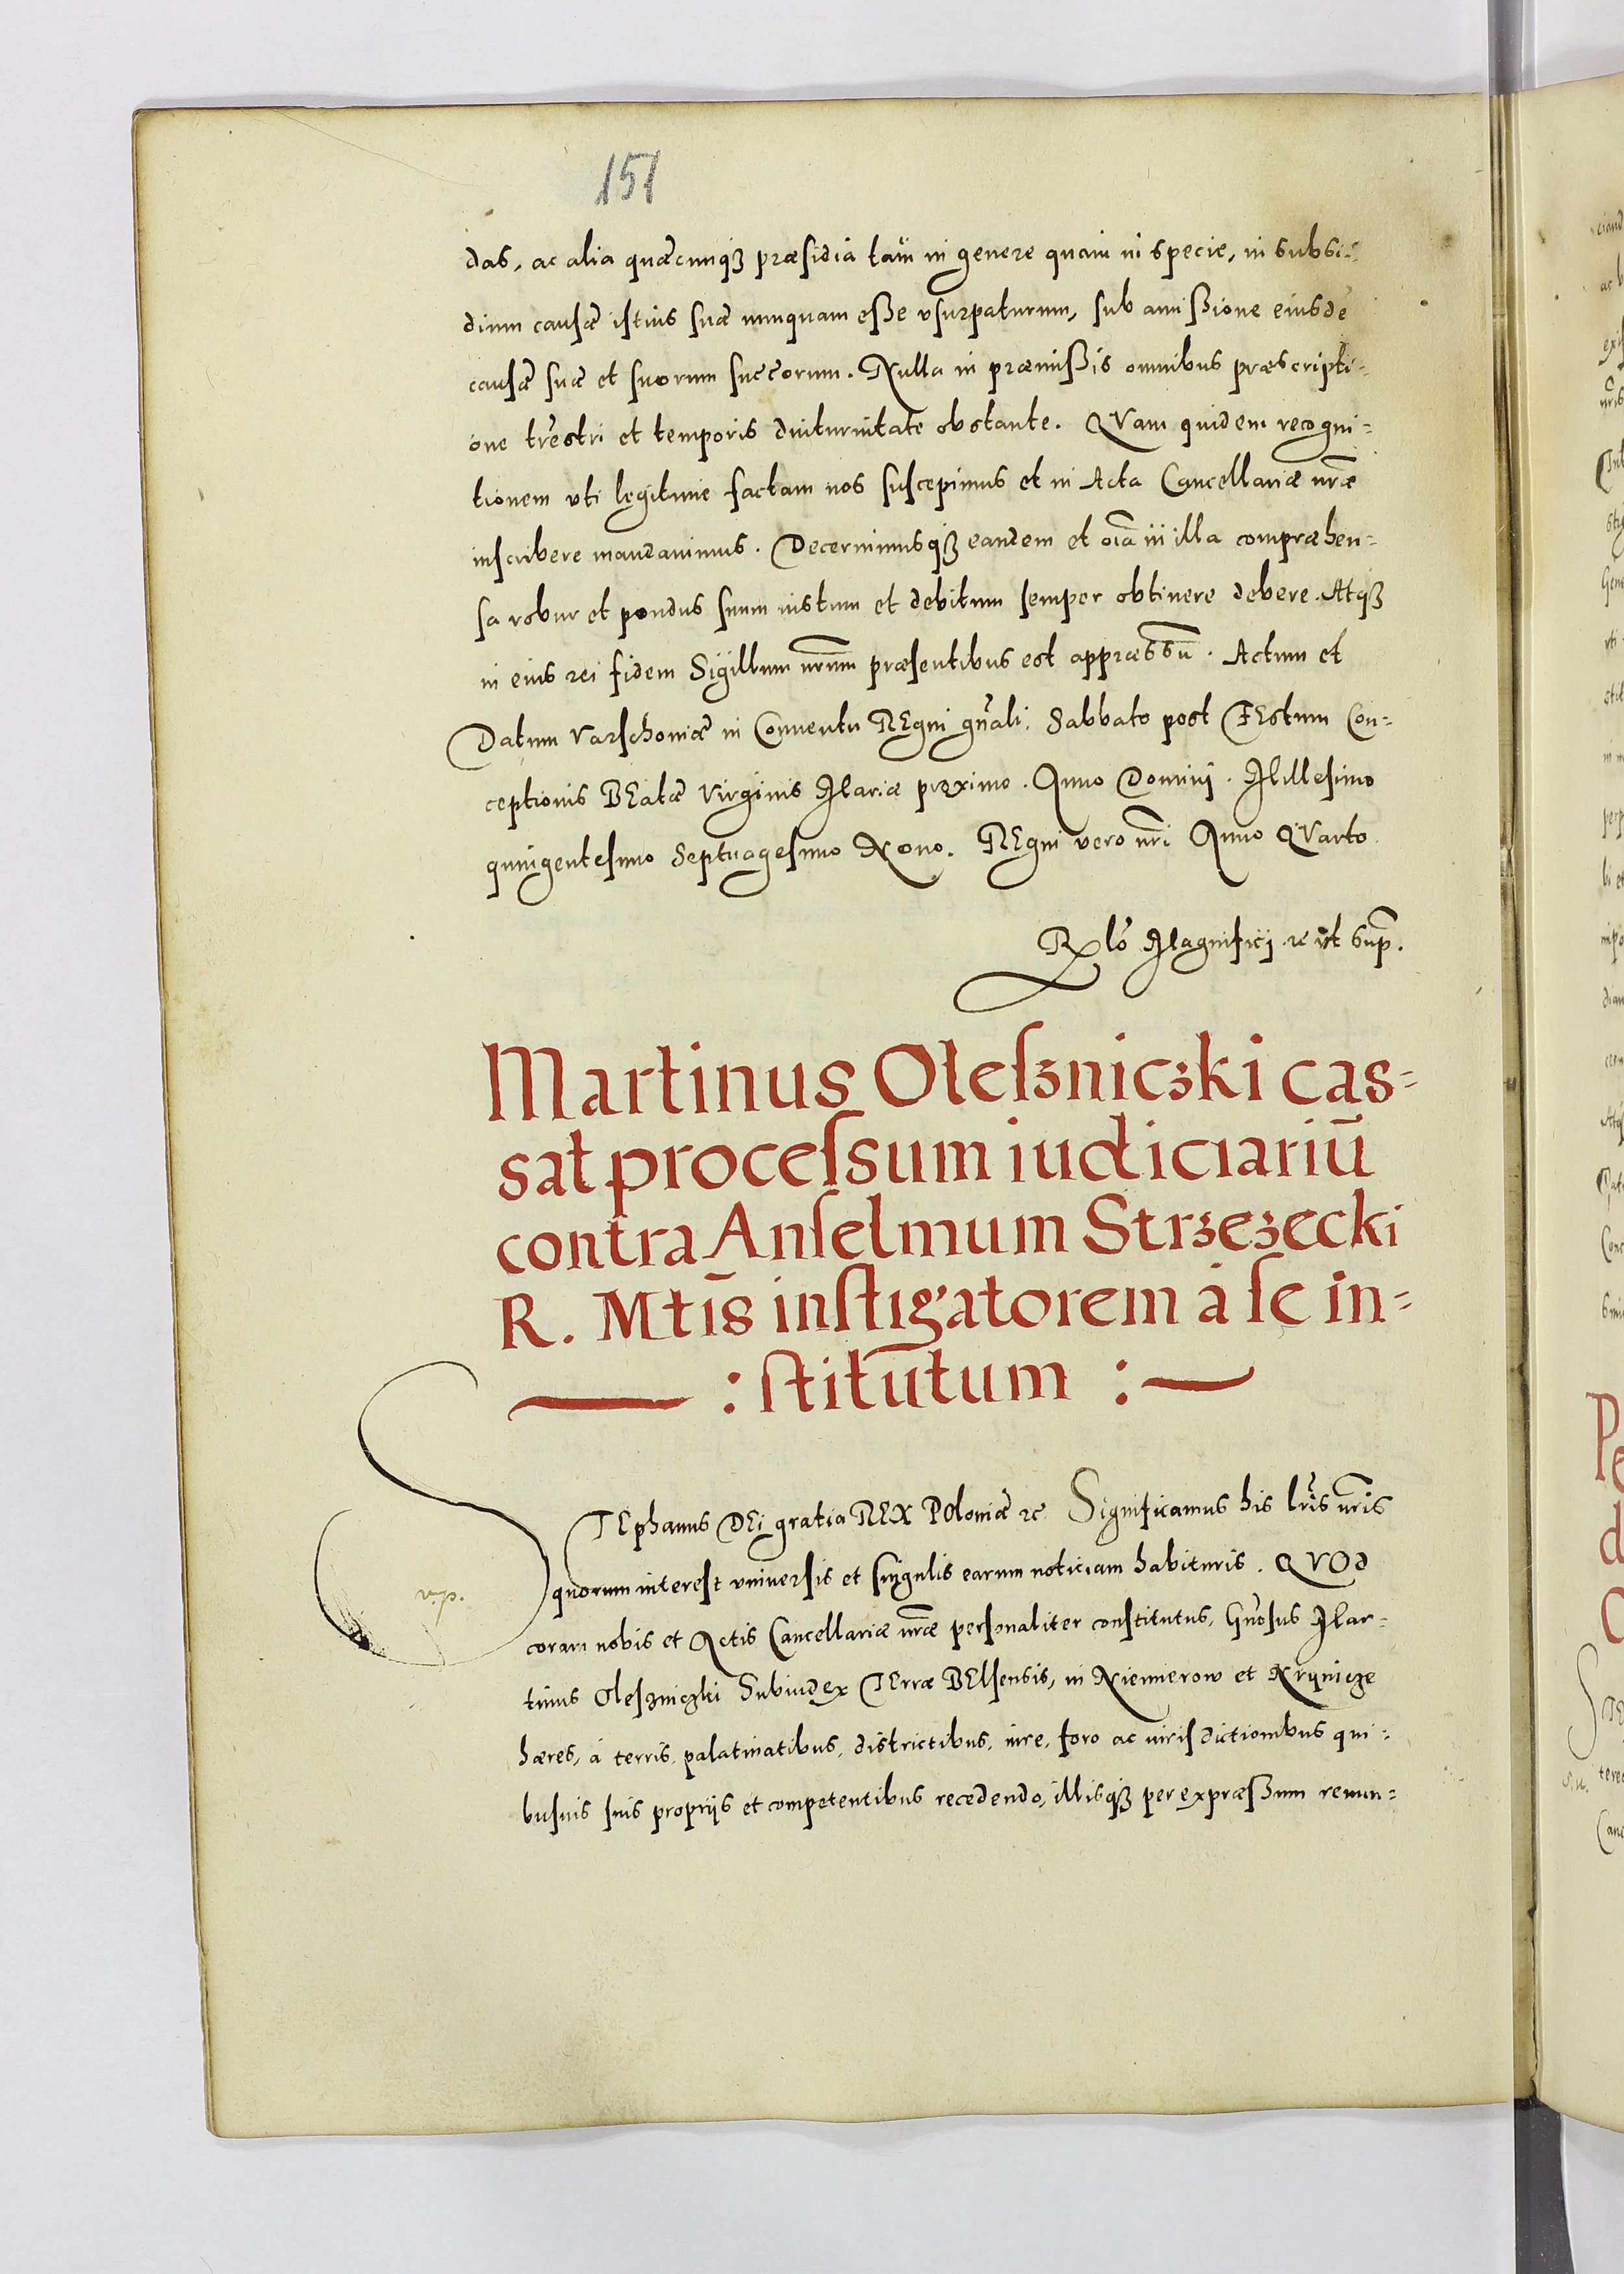 151
das, ac alia quæcunqꝫ præsidia tam in genere quam in specie, in subsi-
dium causæ istius suæ nunquam esße vsurpaturum, sub amisßione eiusdē
causæ suæ et suorum succorum. Nulla in præmisßis omnibus præscripti-
one tr̄estri et temporis diuturnitate obstante. QVam quidem recogni=
tionem vti legitime factam nos suscepimus et in Acta Cancellariæ nr̄æ
inscribere mandauimus. Decernimusqꝫ eandem et oīa in illa compræhen=
sa robur et pondus suum iustum et debitum semper obtinere debere. Atqꝫ
in eius rei fidem Sigillum nr̄um præsentibus est appræssū. Actum et
Datum Varschoniæ in Conuentu REgni gn̄ali. Sabbato post FEstum Con=
ceptionis BEatæ Virginis Mariæ proximo. Anno Domini. Millesimo
quingentesimo Septuagesimo Nono. REgni vero nr̄i Anno QVarto
Rlō Magnifici ꝛc vt sup̄.
Martinus Oleſzniczki cas=
sat proceſsum iudiciariū
contra Anſelmum Strzezecki
R. Mtīs inſtigatorem à ſe in=
: ſtitutum :
STEphanus DEi gratia REX POloniæ ꝛc Significamus his lr̄is nr̄is
quorum interest vniuersis et singulis earum noticiam habituris. QVOd
coram nobis et Actis Cancellariæ nr̄æ personaliter constitutus, Gn̄osus Mar=
tinus Oleszniczki Subiudex TErræ BElsensis, in Niemierow et Krynicze
hæres, à terris, palatinatibus, districtibus, iure, foro ac iurisdictionibus qui=
busuis suis proprijs et competentibus recedendo, illisqꝫ per expræsßum renun=